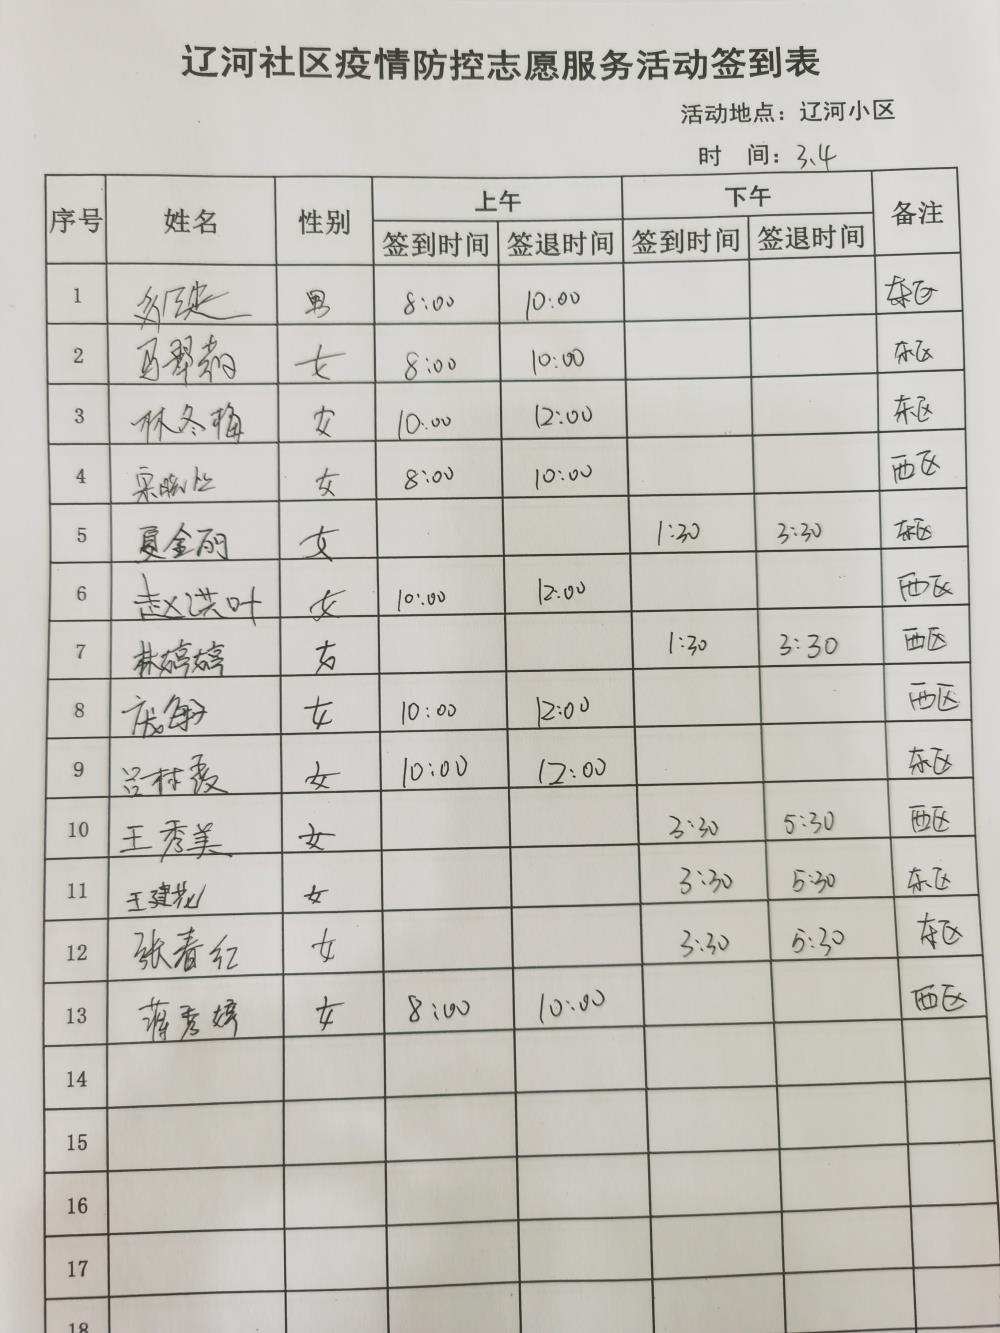 辽河社区疫情防控志愿服务活动签到表
活动地点：辽河小区
时 间：3.4
序号 姓名 性别 上午 下午 备注
签到时间 签退时间 签到时间 签退时间
1 男 8:00 10:00 东区
2 女 8:00 10:00 东区
3 林冬梅 女 10:00 12:00 东区
4 女 8:00 10:00 西区
5 夏金丽 女 1:30 3:30 东区
6 赵洪叶 女 10:00 12:00 西区
7 林婷婷 女 1:30 3:30 西区
8 庞海 女 10:00 12:00 西区
9 吕林霞 女 10:00 12:00 东区
10 王秀美 女 3:30 5:30 西区
11 王建花 女 3:30 5:30 东区
12 张春红 女 3:30 5:30 东区
13 蒋秀婷 女 8:00 10:00 西区
14
15
16
17
18